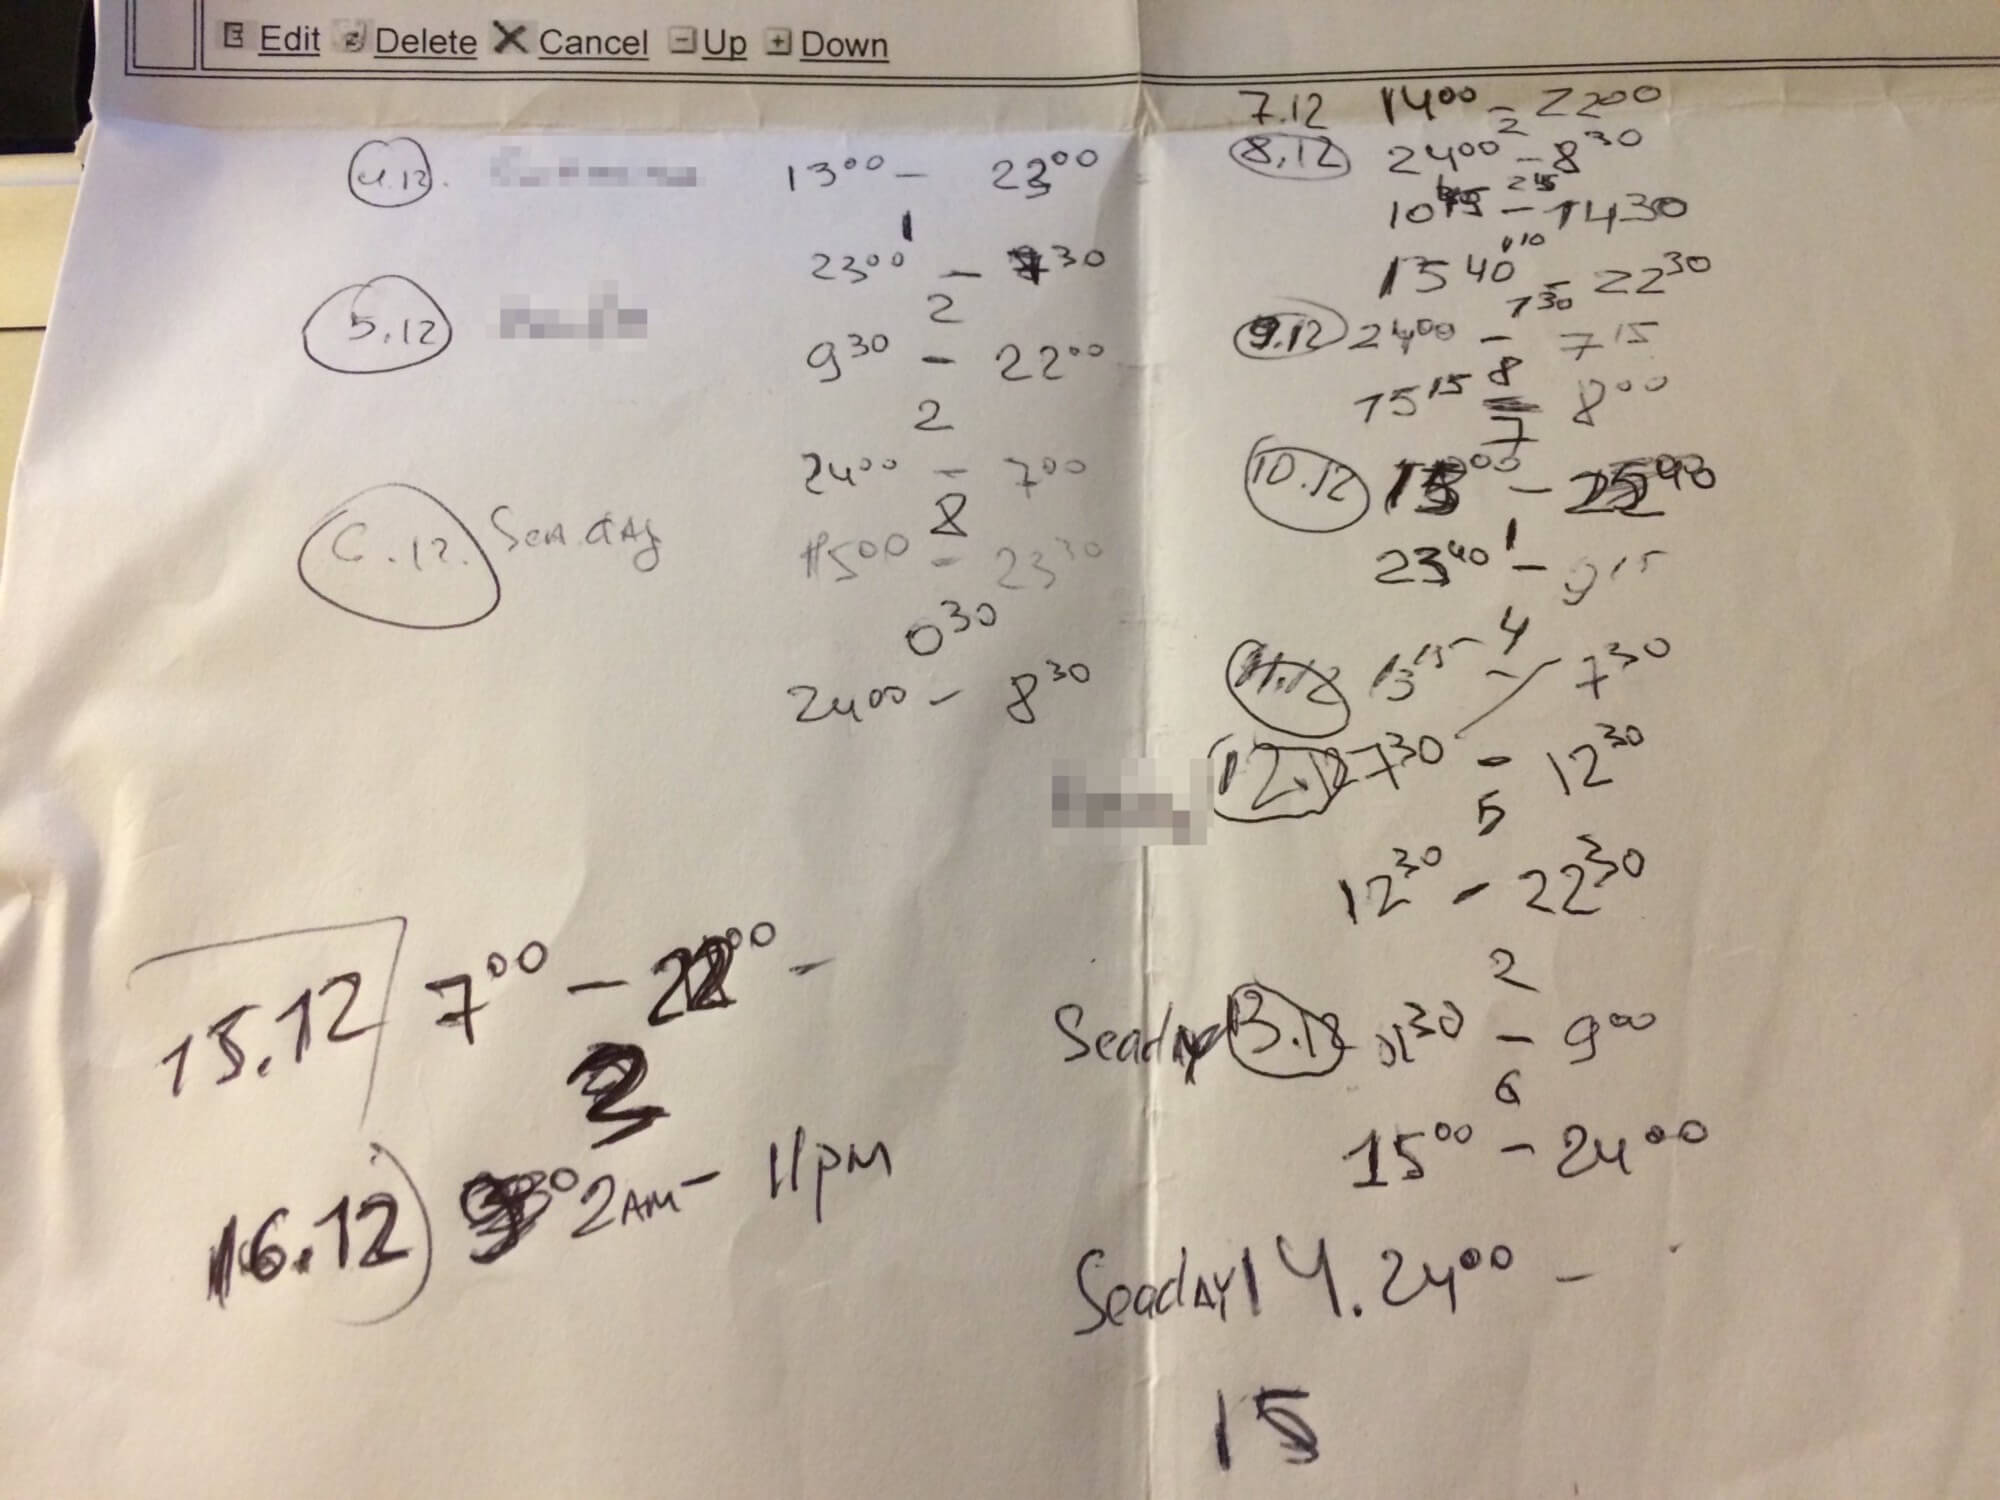 Edit Delete Cancel Up Down
4.12. 13 00 - 23 00
1
23 00 - 30
2
5.12 9 30 - 22 00
2
24 00 - 7 00
8
6.12. Sea day 15 00 - 23 30
0 30
24 00 - 8 30
15.12 7 00 - 22 00 -
2
16.12 2 AM - 11 PM
7.12 14 00 - 22 00
2
8.12 24 00 - 8 30
10 - 14 30
15 40 - 22 30
1 30
9.12 24 00 - 7 15
8
15 15 8 00
7
10.12 00 - 40
1
23 40 - 9 15
4
11.12 13 15 - 7 30
12.12 7 30 - 12 30
5
12 30 - 22 30
2
Seaday 13.12 30 - 9 00
6
15 00 - 24 00
Seaday 14. 24 00 -
15